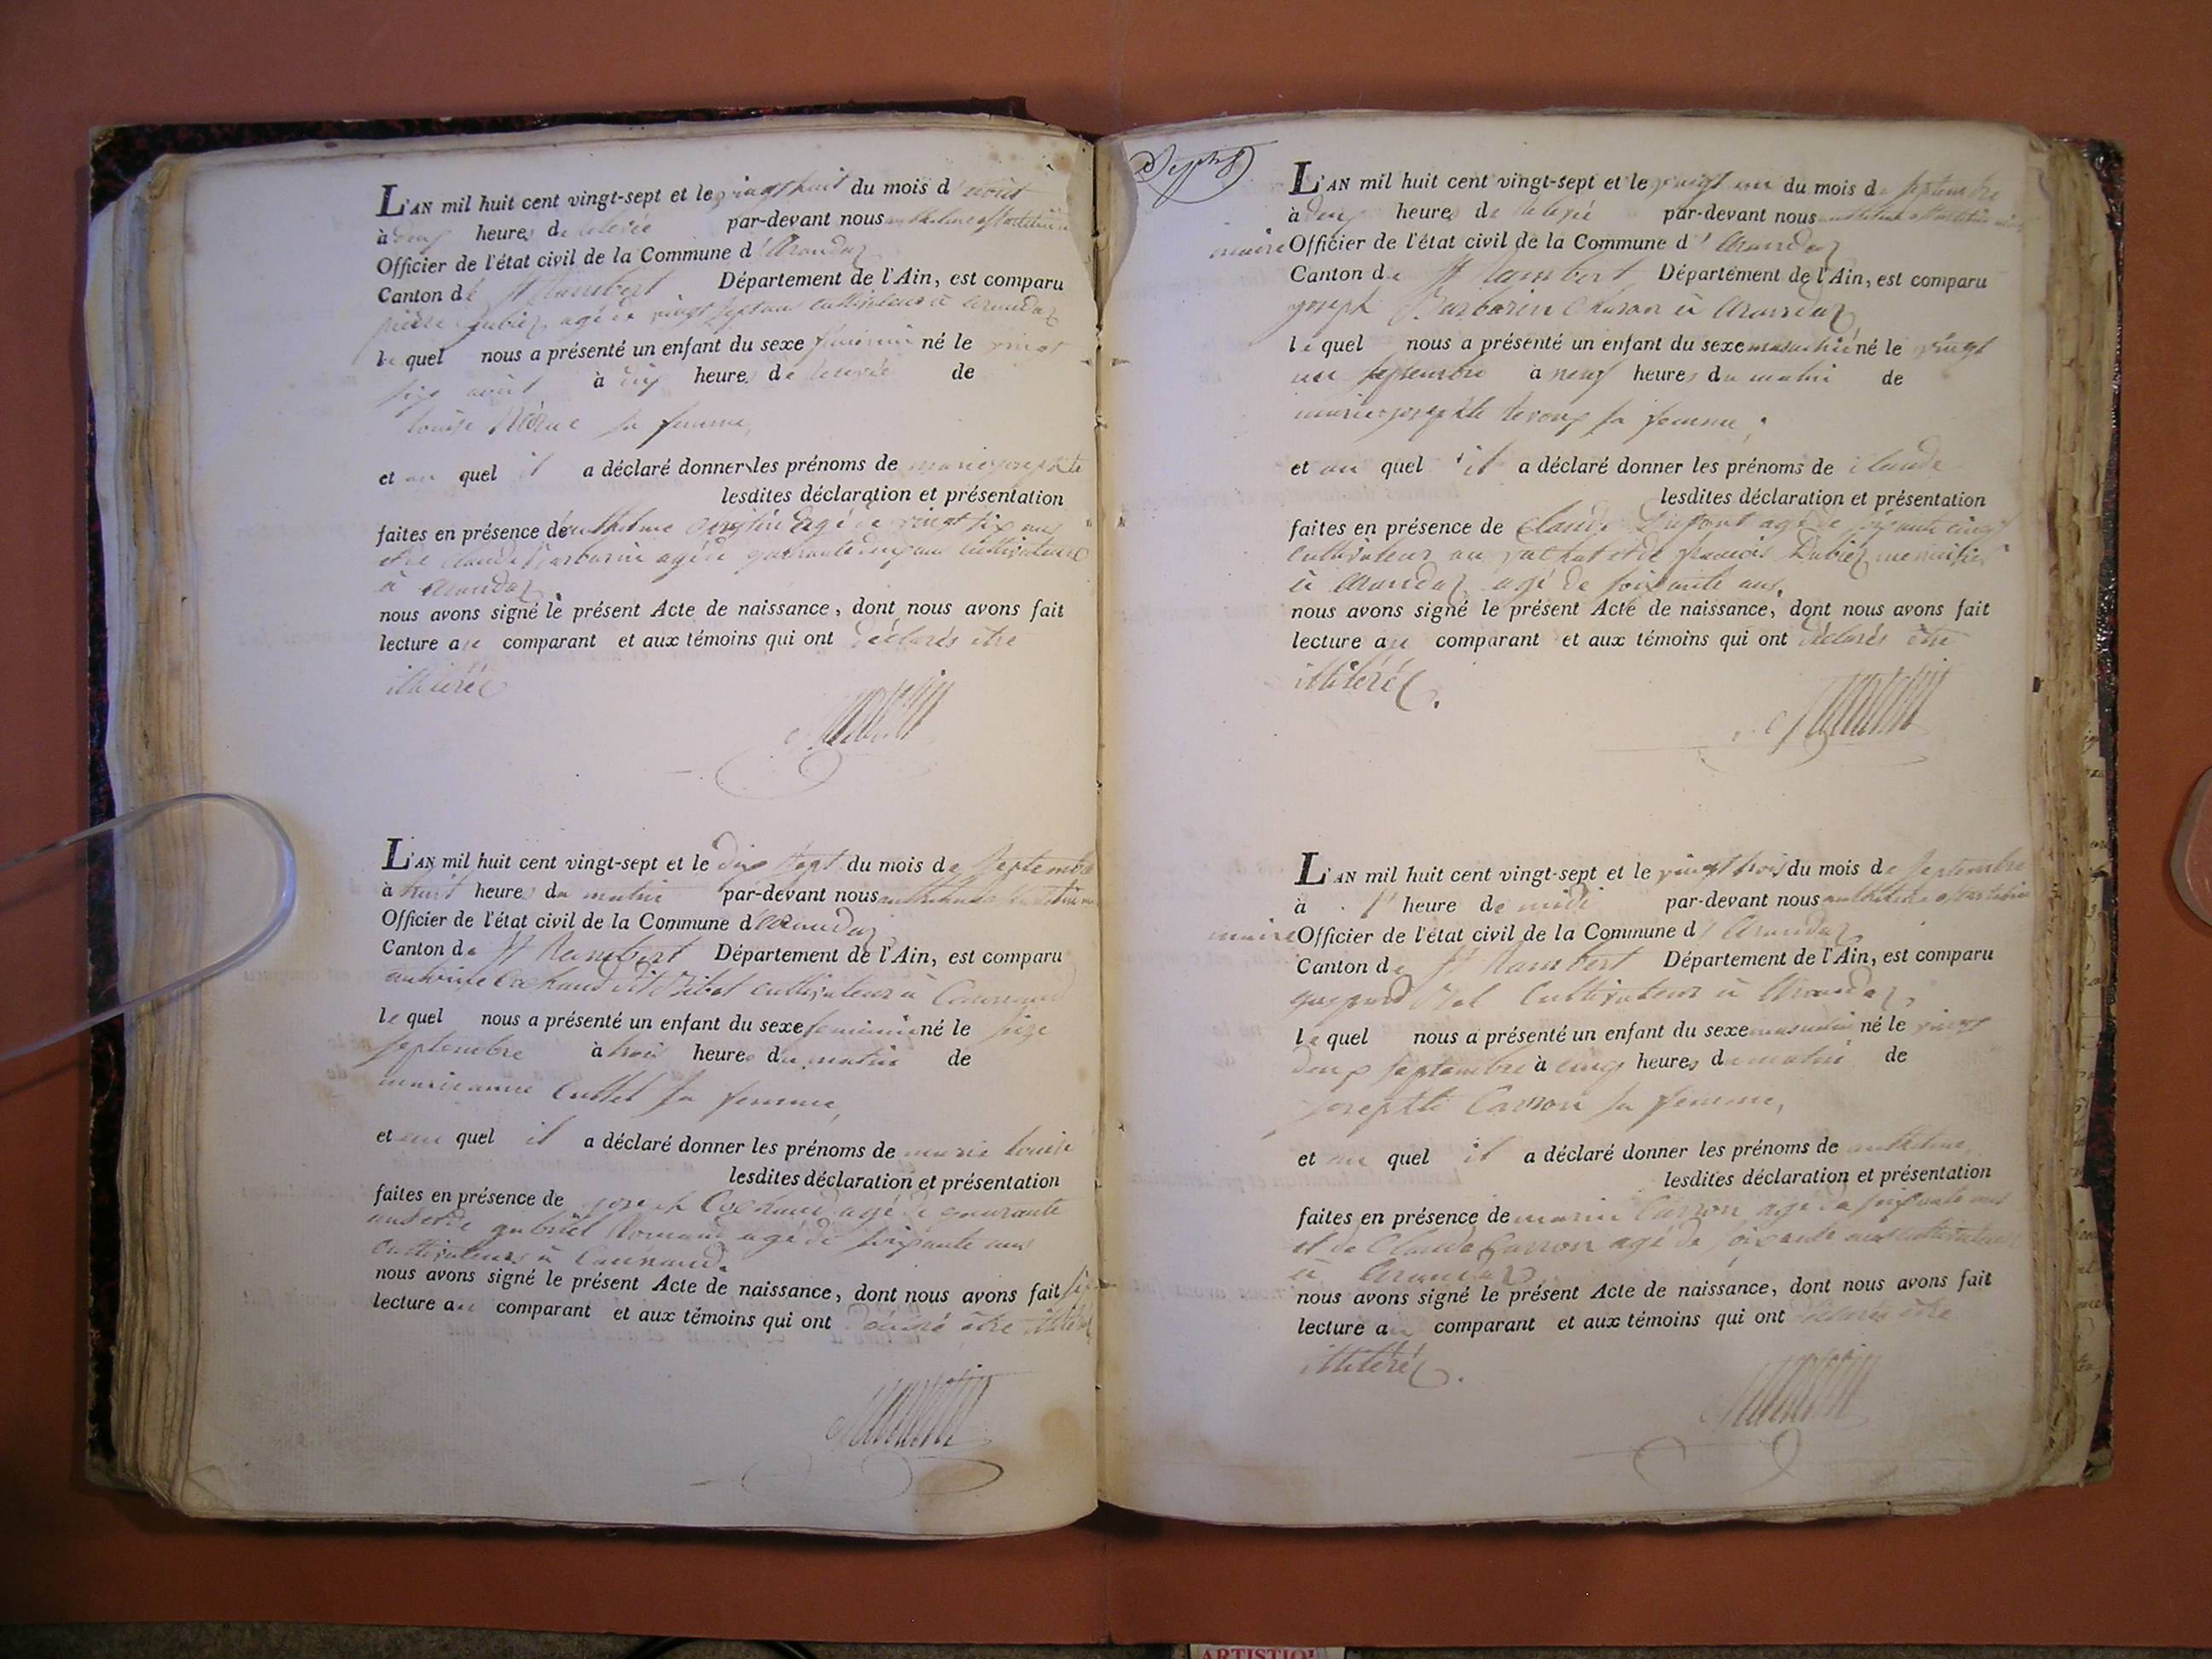 L'AN mil huit cent vingt-sept et le vingt huit du mois d'août
à deux heures de relevée par-devant nous
Officier de l'état civil de la Commune d'Arandaz
Canton de St Rambert Département de l'Ain, est comparu
pierre Dubiez agé de vingt sept ans cultivateur à Arandaz
lequel nous a présenté un enfant du sexe féminin né le vingt
six août à dix heures de de
louise sa femme,
et au quel il a déclaré donner les prénoms de marie josephte
lesdites déclaration et présentation
faites en présence de anthelme agé de vingt six ans
et de claude Barbarin agé de quarante cinq ans cultivateurs
à Arandaz
nous avons signé le présent Acte de naissance, dont nous avons fait
lecture au comparant et aux témoins qui ont déclarés être
illitérés
L'AN mil huit cent vingt-sept et le dix sept du mois de Septembre
à huit heures du matin par-devant nous
Officier de l'état civil de la Commune d'Arandaz
Canton de St Rambert Département de l'Ain, est comparu
antoine Cochaud dit cultivateur à
lequel nous a présenté un enfant du sexe feminin né le seize
septembre à trois heures du matin de
marie anne Cuttel sa femme,
et au quel il a déclaré donner les prénoms de marie louise
lesdites déclaration et présentation
faites en présence de joseph Cochaud agé de quarante
ans et de gabriel Romand agé de soixante ans
cultivateurs à
nous avons signé le présent Acte de naissance, dont nous avons fait
lecture au comparant et aux témoins qui ont déclaré être
L'AN mil huit cent vingt-sept et le vingt un du mois de septembre
à deux heures de relevée par-devant nous
maire Officier de l'état civil de la Commune d'Arandaz
Canton de St Rambert Département de l'Ain, est comparu
joseph Barbarin charon à Arandaz
lequel nous a présenté un enfant du sexe masculin né le vingt
un septembre à neuf heures du matin de
marie josephte sa femme,
et au quel il a déclaré donner les prénoms de claude
lesdites déclaration et présentation
faites en présence de Claude Dupont agé de soixante cinq
cultivateur au et de françois Dubiez menuisier
à Arandaz agé de soixante ans,
nous avons signé le présent Acte de naissance, dont nous avons fait
lecture au comparant et aux témoins qui ont déclarés être
illitérés.
L'AN mil huit cent vingt-sept et le vingt trois du mois de Septembre
à heure de midi par-devant nous
maire Officier de l'état civil de la Commune d'Arandaz
Canton de St Rambert Département de l'Ain, est comparu
gaspard cultivateur à Arandaz,
lequel nous a présenté un enfant du sexe masculin né le vingt
deux septembre à cinq heures du matin de
josephte Carron sa femme,
et au quel il a déclaré donner les prénoms de anthelme
lesdites déclaration et présentation
faites en présence de Carron agé de soixante ans
et de Claude Carron agé de soixante ans cultivateurs
à Arandaz
nous avons signé le présent Acte de naissance, dont nous avons fait
lecture au comparant et aux témoins qui ont déclarés être
illitérés.